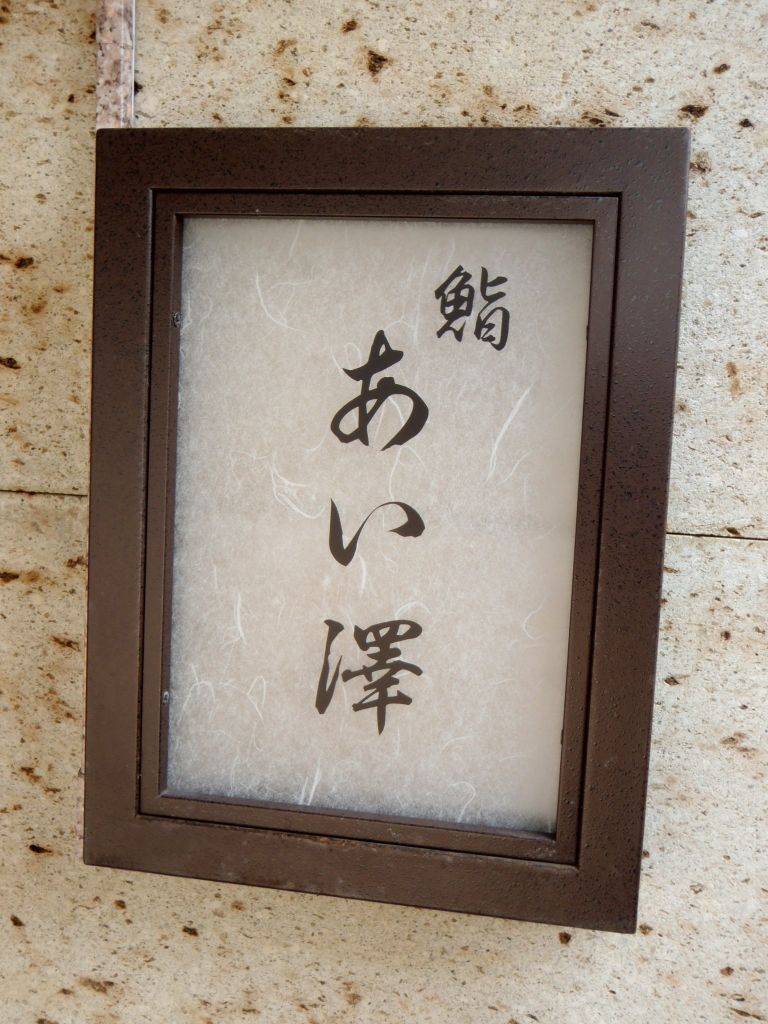 鮨
あい澤